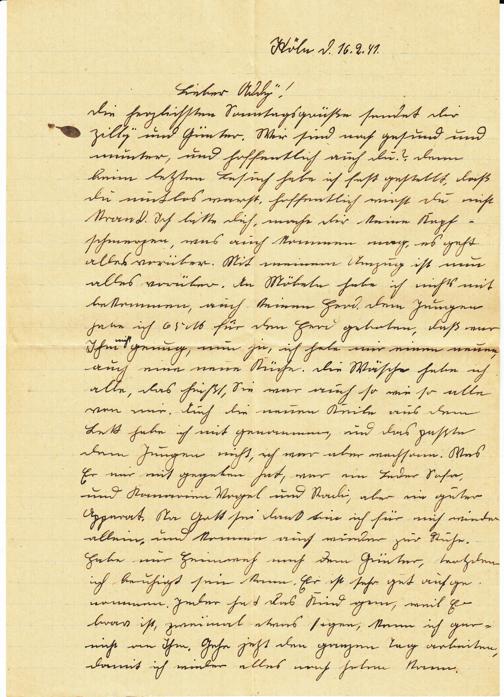 Köln d. 16.2.41.
Lieber Addy!
Die herzlichsten Sonntagsgrüße sendet dir
Zilly und Günter. Wir sind noch gesund und
munter, und hoffentlich auch du? denn
beim letzten Besuch habe ich fest gestellt, daß
du mutlos warst, hoffentlich warst du nicht
krank. Ich bitte dich, mache dir keine Kopf-
schmerzen, was auch kommen mag, es geht
alles vorüber. Mit meinem Umzug ist nun
alles vorüber. An Möbeln habe ich nichts mit
bekommen, auch keinen Herd. dem Jungen
habe ich 65 M für den Herd geboten, daß war
Ihm nicht genug, nun ja, ich habe mir einen neuen,
auch eine neue Küche. die Wäsche habe ich
alle, das heißt, Sie war auch so wie so alle
von mir. Auch die neuen Keile aus dem
Bett habe ich mit genommen, und das paßte
dem Jungen nicht, ich war aber wachsam. Was
Er mir mit gegeben hat, war ein Leder Sofa,
und Kanarien Vogel und Radi, aber ein guter
Apparat. Na Gott sei dank bin ich für mich wieder
allein, und komme auch wieder zur Ruhe.
Habe nur Heimweh nach dem Günter, trotzdem
ich beruhigt sein kann. Er ist sehr gut aufge-
nommen. Jeder hat das Kind gern, weil Er
brav ist, zweimal etwas sagen, kenn ich gar-
nicht an Ihm. Gehe jetzt den ganzen Tag arbeiten,
damit ich wieder alles nach holen kann.